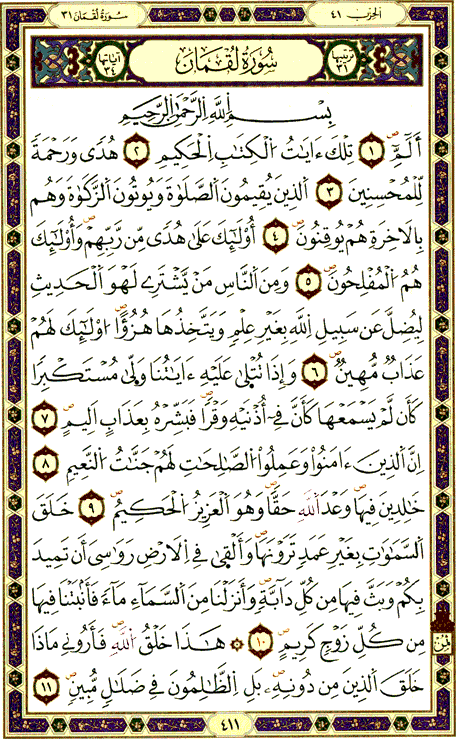 الحزب ٤١
سُورَةُ لُقْمَانَ ٣١
ترتيبها ٣١
سُورَةُ لُقْمَانَ
آياتها ٣٤
بِسْمِ اللَّهِ الرَّحْمَٰنِ الرَّحِيمِ
أَلَمِّٓ ۝١ تِلْكَ ءَايَٰتُ الْكِتَٰبِ الْحَكِيمِ ۝٢ هُدىً وَرَحْمَةً
لِّلْمُحْسِنِينَ ۝٣ الَّذِينَ يُقِيمُونَ الصَّلَوٰةَ وَيُوتُونَ الزَّكَوٰةَ وَهُم
بِالَاخِرَةِ هُمْ يُوقِنُونَ ۝٤ أُوْلَٰٓئِكَ عَلَىٰ هُدىً مِّن رَّبِّهِمْ وَأُوْلَٰٓئِكَ
هُمُ الْمُفْلِحُونَ ۝٥ وَمِنَ النَّاسِ مَنْ يَّشْتَرِے لَهْوَ الْحَدِيثِ
لِيُضِلَّ عَن سَبِيلِ اللَّهِ بِغَيْرِ عِلْمٍ وَيَتَّخِذُهَا هُزُؤاً ا۟وْلَٰٓئِكَ لَهُمْ
عَذَابٌ مُّهِينٌ ۝٦ وَإِذَا تُتْلَىٰ عَلَيْهِ ءَايَٰتُنَا وَلَّىٰ مُسْتَكْبِراً
كَأَن لَّمْ يَسْمَعْهَا كَأَنَّ فِےٓ أُذْنَيْهِ وَقْراً فَبَشِّرْهُ بِعَذَابٍ اَلِيمٍ ۝٧
إِنَّ الَّذِينَ ءَامَنُوا۟ وَعَمِلُوا۟ الصَّٰلِحَٰتِ لَهُمْ جَنَّٰتُ النَّعِيمِ ۝٨
خَٰلِدِينَ فِيهَا وَعْدَ اللَّهِ حَقّاً وَهُوَ الْعَزِيزُ الْحَكِيمُ ۝٩ خَلَقَ
السَّمَٰوَٰتِ بِغَيْرِ عَمَدٍ تَرَوْنَهَا وَأَلْقَىٰ فِے الَارْضِ رَوَٰسِىَ أَن تَمِيدَ
بِكُمْ وَبَثَّ فِيهَا مِن كُلِّ دَآبَّةٍ وَأَنزَلْنَا مِنَ السَّمَآءِ مَآءً فَأَنۢبَتْنَا فِيهَا
مِن كُلِّ زَوْجٍ كَرِيمٍ ۝١٠ ۞ هَٰذَا خَلْقُ اللَّهِ فَأَرُونِے مَاذَا
خَلَقَ الَّذِينَ مِن دُونِهِۦ بَلِ الظَّٰلِمُونَ فِے ضَلَٰلٍ مُّبِينٍ ۝١١
ثمن
٤١١